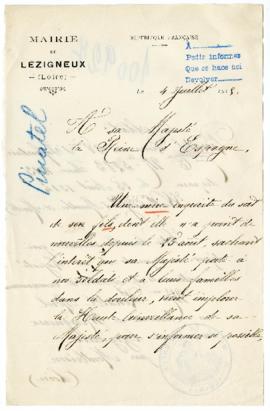 MAIRIE
DE
LEZIGNEUX
(Loire)
RÉPUBLIQUE FRANÇAISE
A
Pedir informes
Que se hace aci
Devolver
Le 4 Juillet 191
Pinatel
A sa Majesté
la Reine d'Espagne,
Une mère inquiète du sort
de son fils, dont elle n'a point de
nouvelles depuis le 25 août, sachant
l'intérêt que sa Majesté porte à
nos soldats et à leurs familles
dans la douleur, vient implorer
la Haute bienveillance de sa
Majesté, pour s'informer si possible,